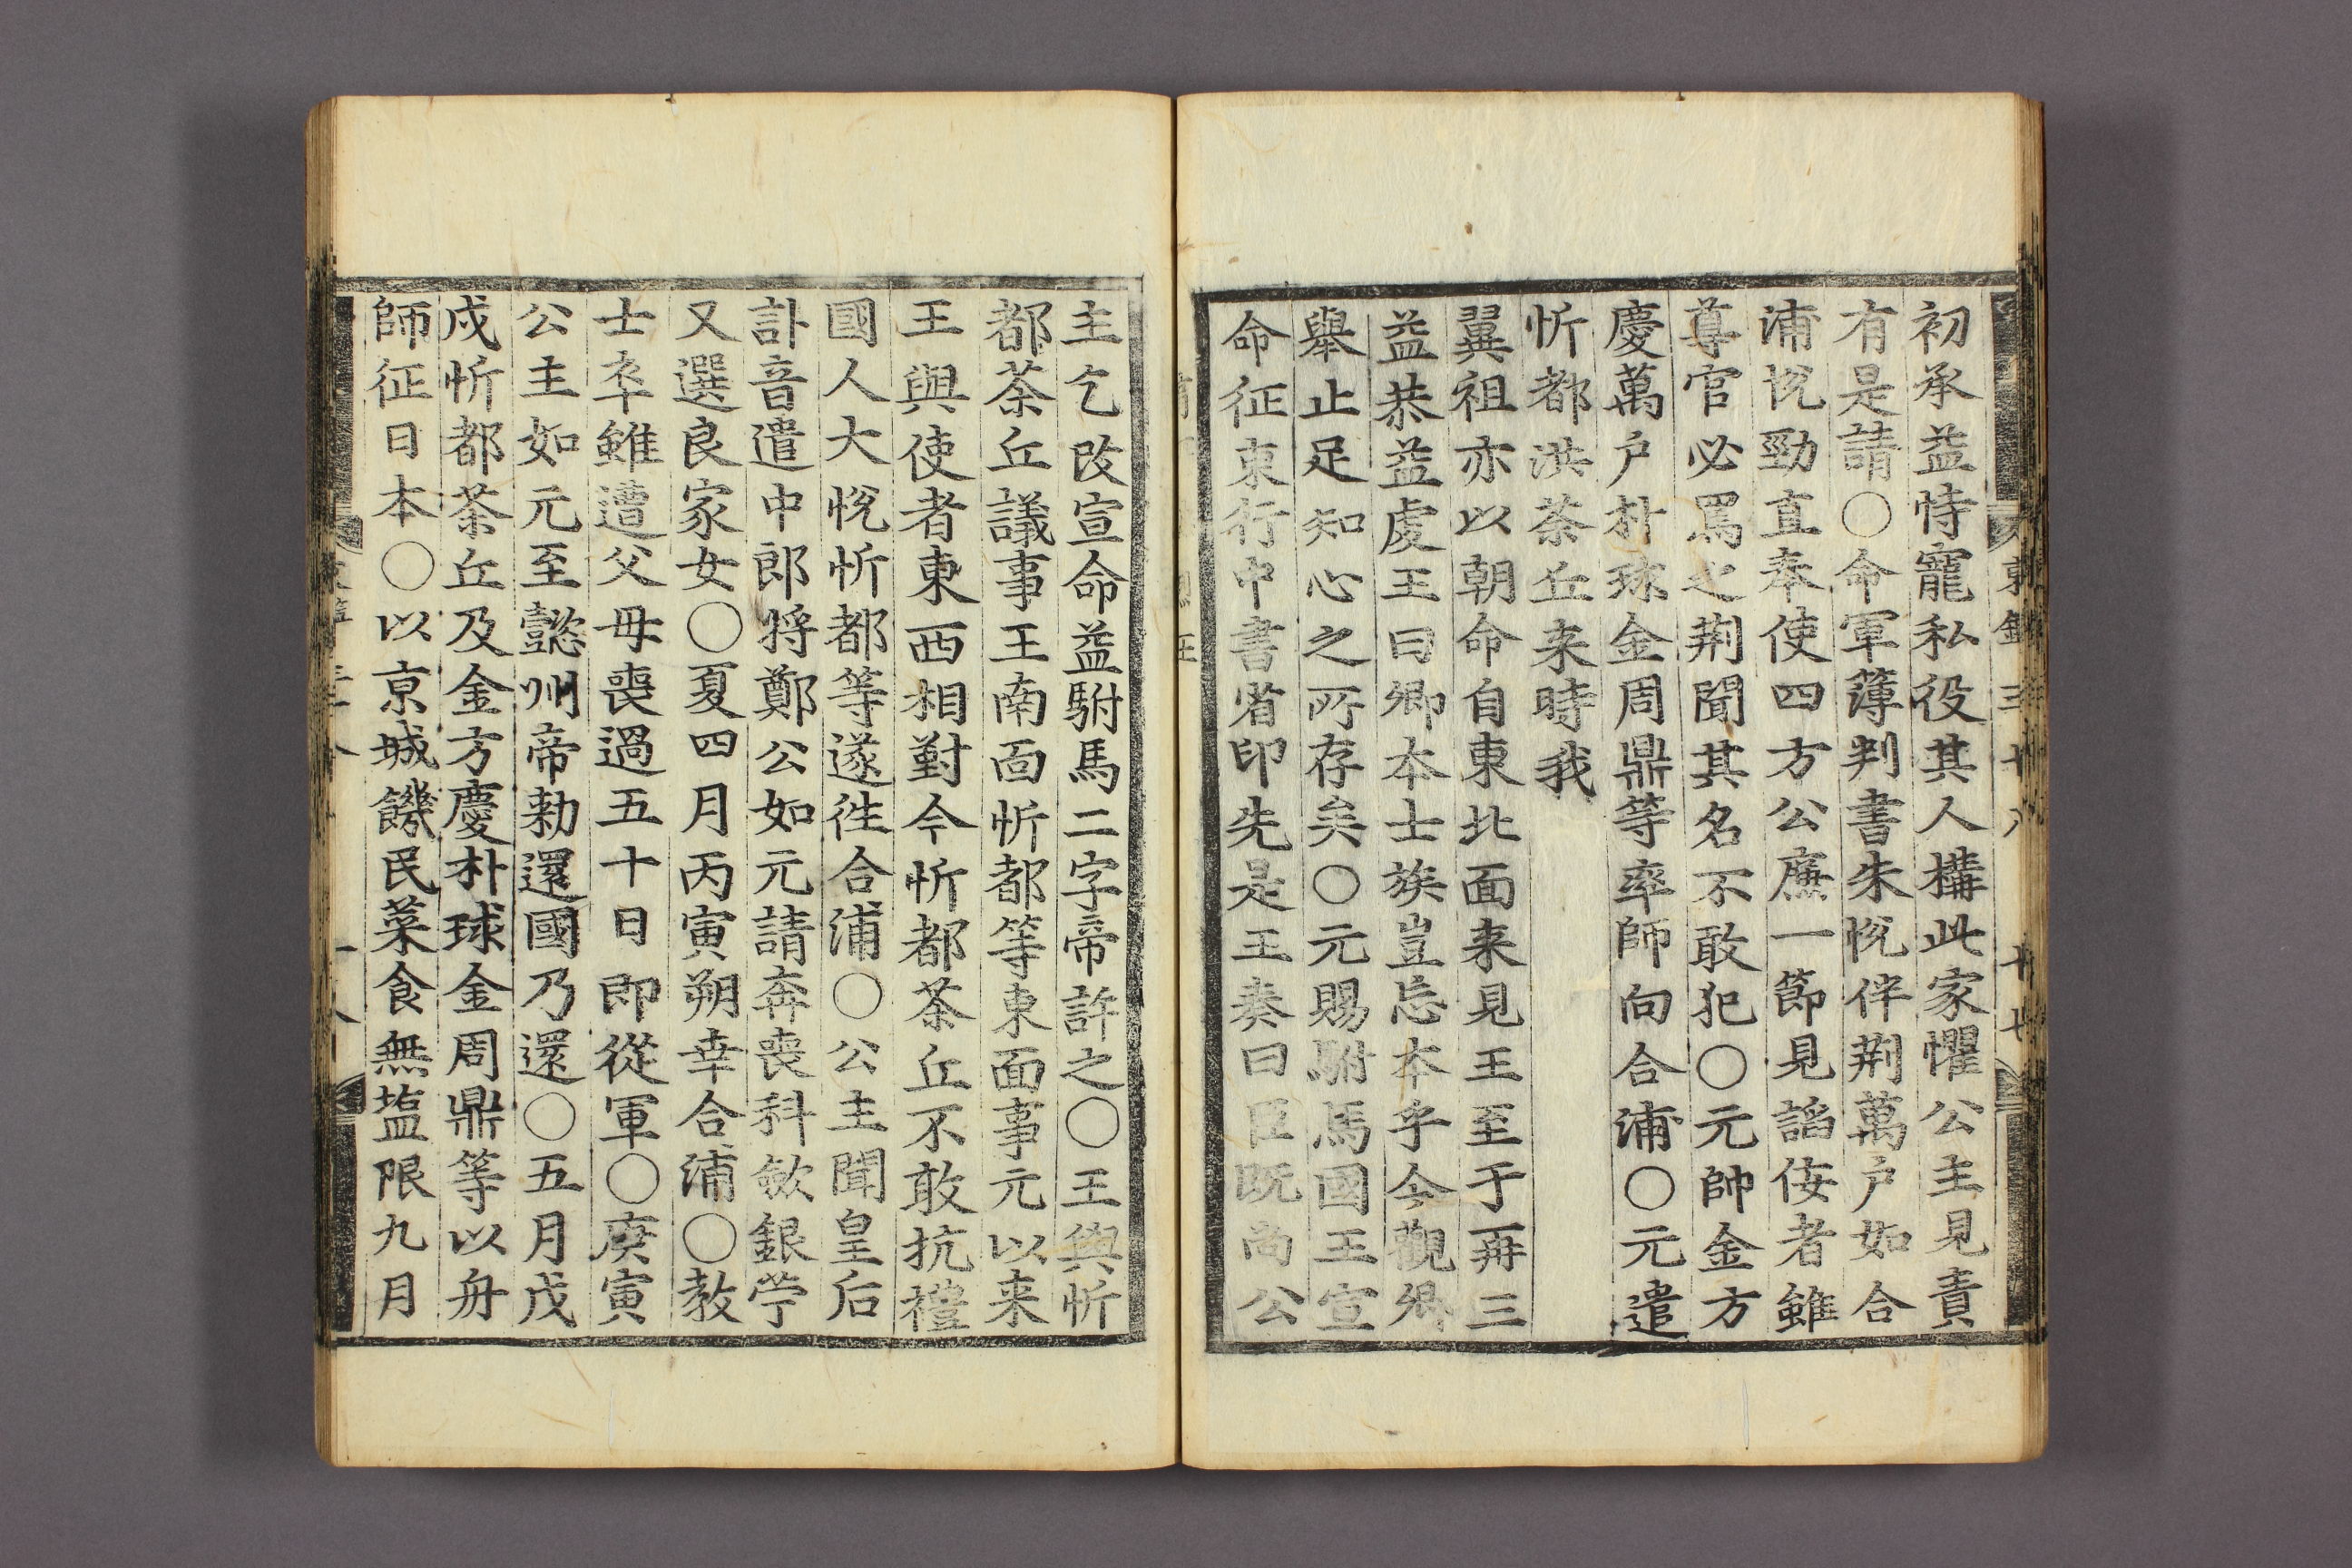 初承益恃寵私役其人構此家懼公主見責
有是請○命軍簿判書朱悅伴荆萬户如合
浦悅勁直奉使四方公廉一節見謟侫者雖
尊官必罵之荆聞其名不敢犯○元帥金方
慶萬户朴球金周鼎等率師向合浦○元遣
忻都洪茶丘来時我
翼祖亦以朝命自東北面来見王至于再三
益恭益虔王曰卿本士族豈忘本乎今觀卿
舉止足知心之所存矣○元賜駙馬國王宣
命征東行中書省印先是王奏曰臣既尚公
主乞改宣命益駙馬二字帝許之○王與忻
都茶丘議事王南面忻都等東面事元以来
王與使者東西相對今忻都茶丘不敢抗禮
國人大悅忻都等遂徃合浦○公主聞皇后
訃音遣中郎将鄭公如元請奔喪科歛銀苧
又選良家女○夏四月丙寅朔幸合浦○教
士卒雖遭父母喪過五十日即從軍○庚寅
公主如元至懿州帝勑還國乃還○五月戊
戌忻都茶丘及金方慶朴球金周鼎等以舟
師征日本○以京城饑民菜食無塩限九月